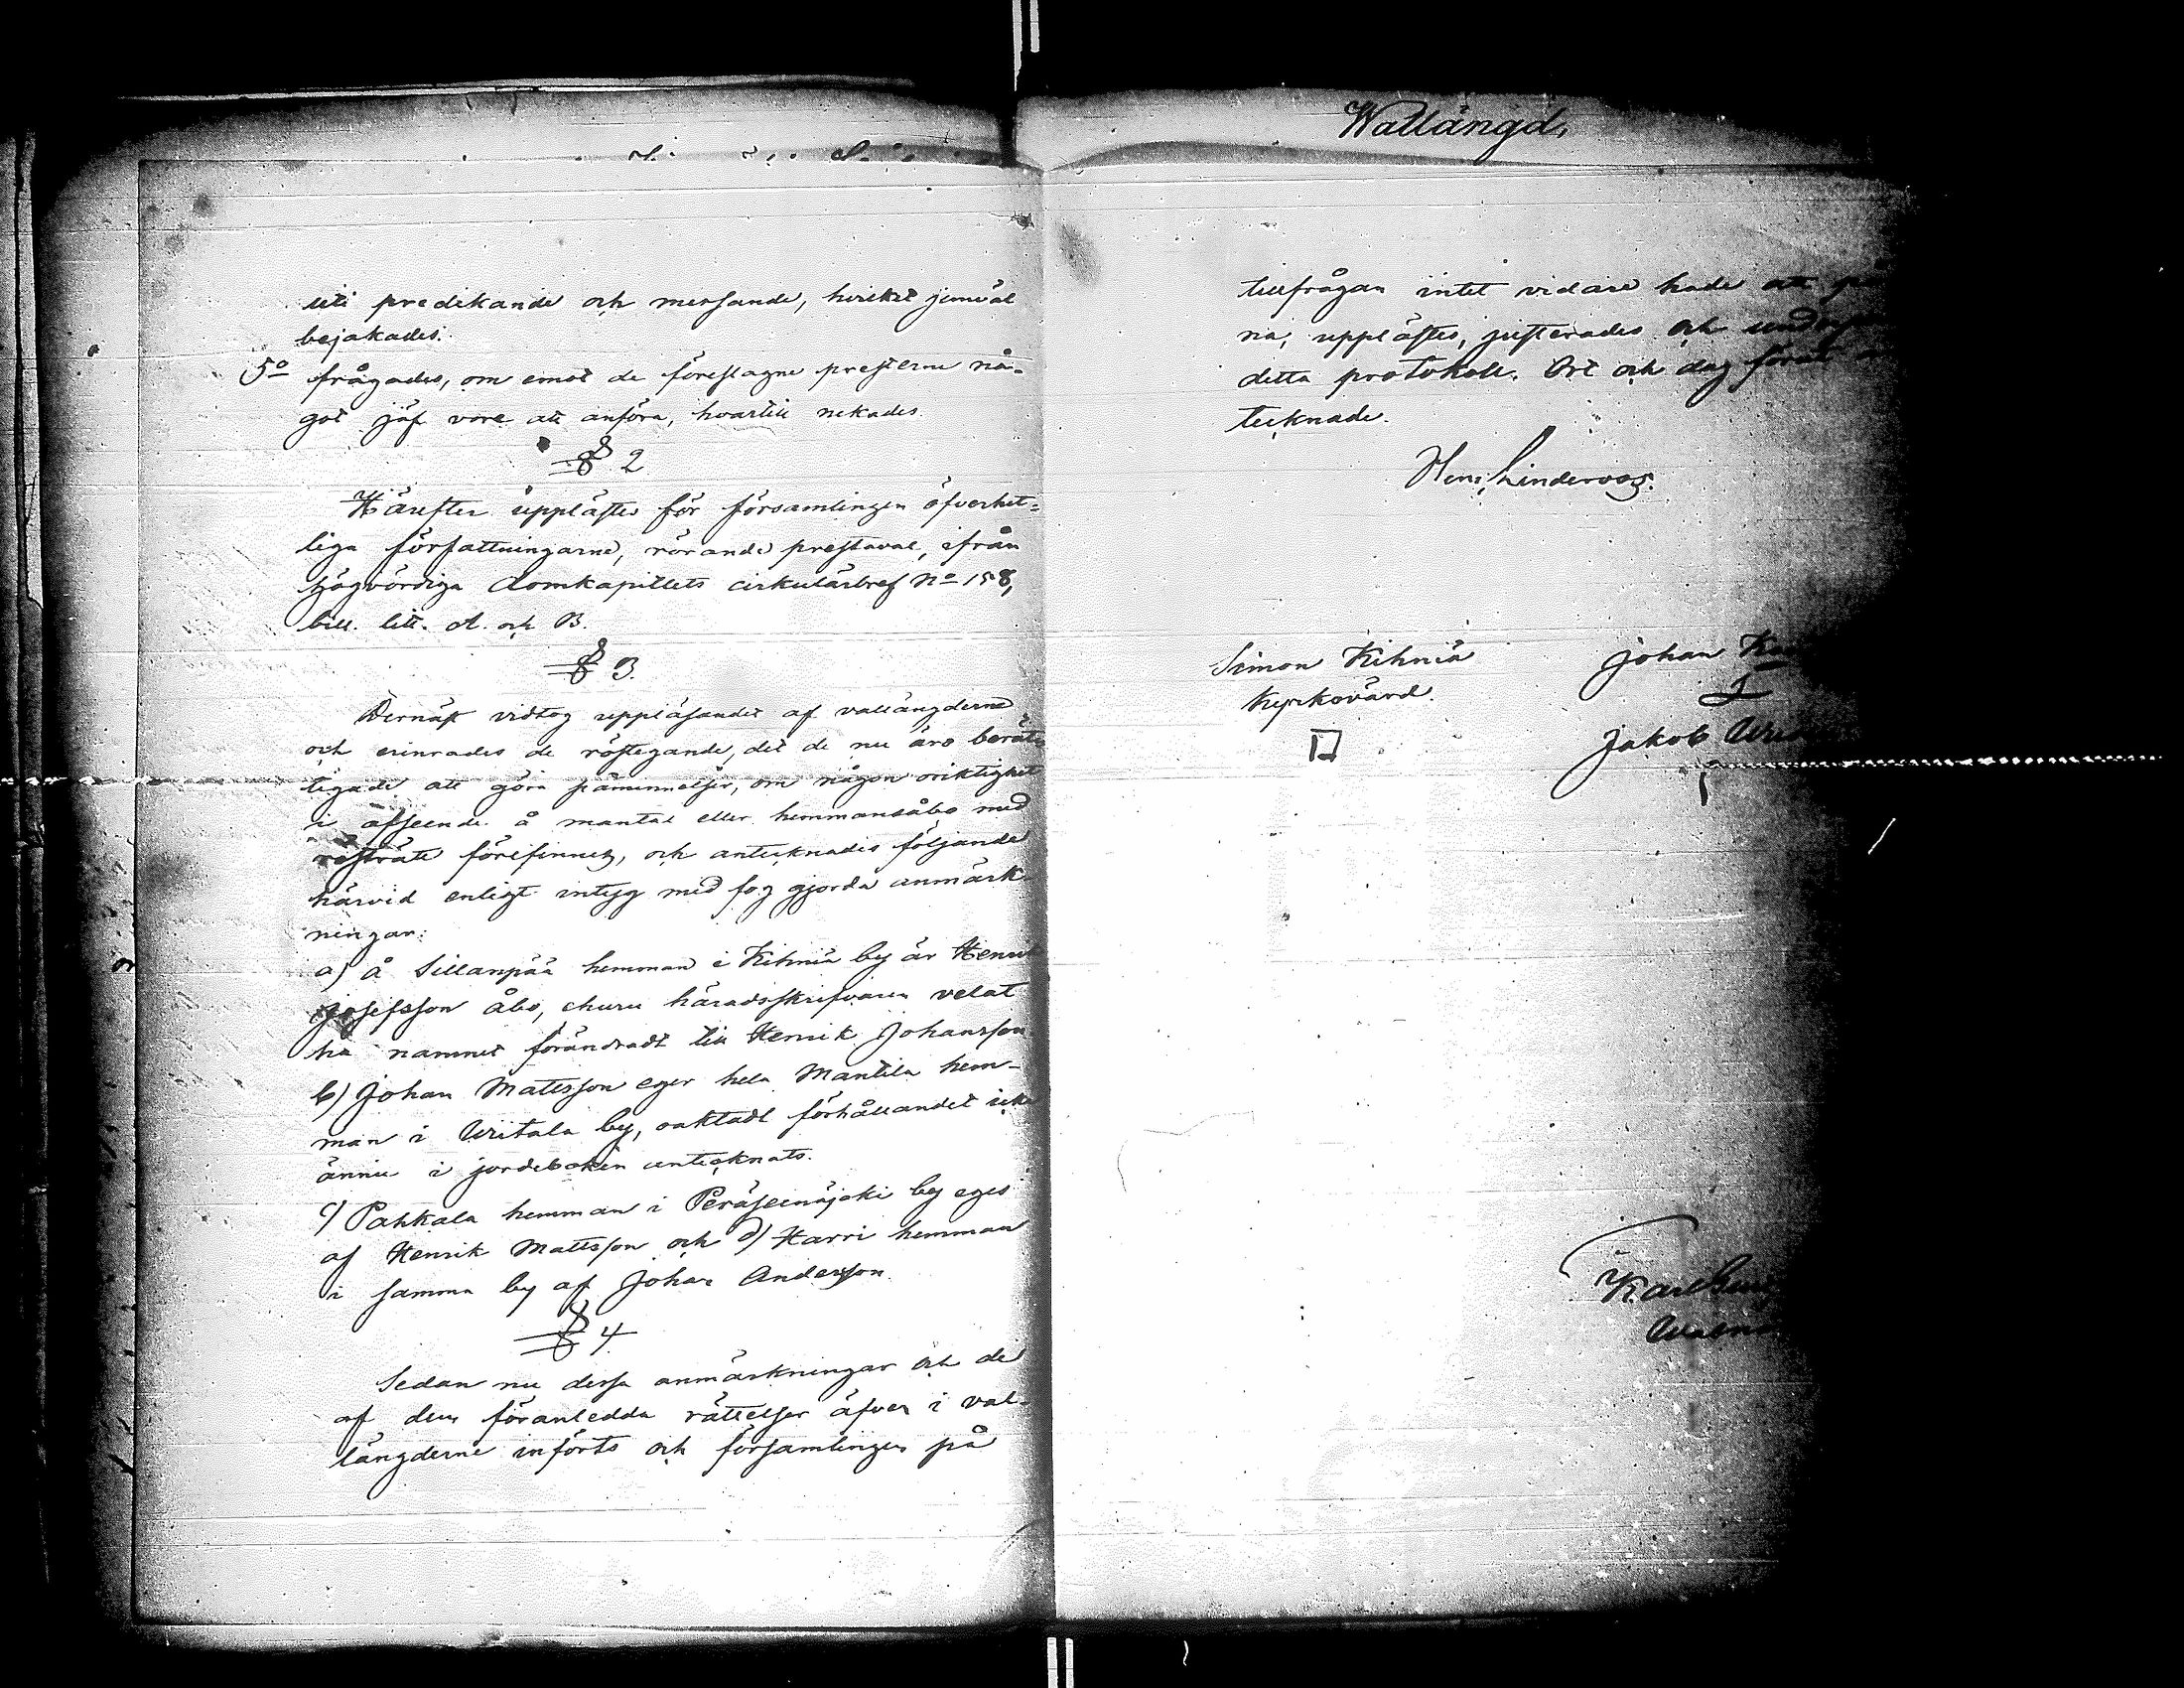 uti predikande och messande, hvilket jemväl
bejakades.
5º frågades, om emot de föreslagne presterne nå-
got jäf vore att anföra, hvartill nekades.
§ 2
Härefter upplästes för församlingen öfverhet-
liga författningarne, rörande prestaval, ifrån
högvördiga domkapitlets cirkulärbref Nº 158,
bill. litt. A. och B.
§ 3.
Dernäst vidtog uppläsandet af vallängderne
och erinrades de röstegande, det de nu äro berät-
tigade att göra påminnelser, om någon oriktighet
i afseende å mantal eller hemmansåbo med
rösträtt förefinnes, och antecknades följande
härvid enligt intyg med fog gjorda anmärk-
ningar:
a) å Sillanpää hemman i Kihniä by är Henrik
Josefsson åbo, ehuru häradsskrifvaren velat
ha namnet förändradt till Henrik Johansson
b) Johan Mattsson eger hela Mantila hem-
man i Writala by, oaktadt förhållandet icke
ännu i jordeboken antecknats.
c) Pahkala hemman i Peräseinäjoki by eges
af Henrik Mattsson och d) Harri hemman
i samma by af Johan Andersson.
§ 4.
Sedan nu dessa anmärkningar och de
af dem föranledda rättelser äfven i val-
längderne införts och församlingen på
Wallängd,
tillfrågan intet vidare hade att
na, upplästes, justerades och
detta protokoll. Ort och dag förut
tecknade.
Hen: Linderoos.
Simon Kihniä
Kyrkovärd.
Johan
Jakob
Karl